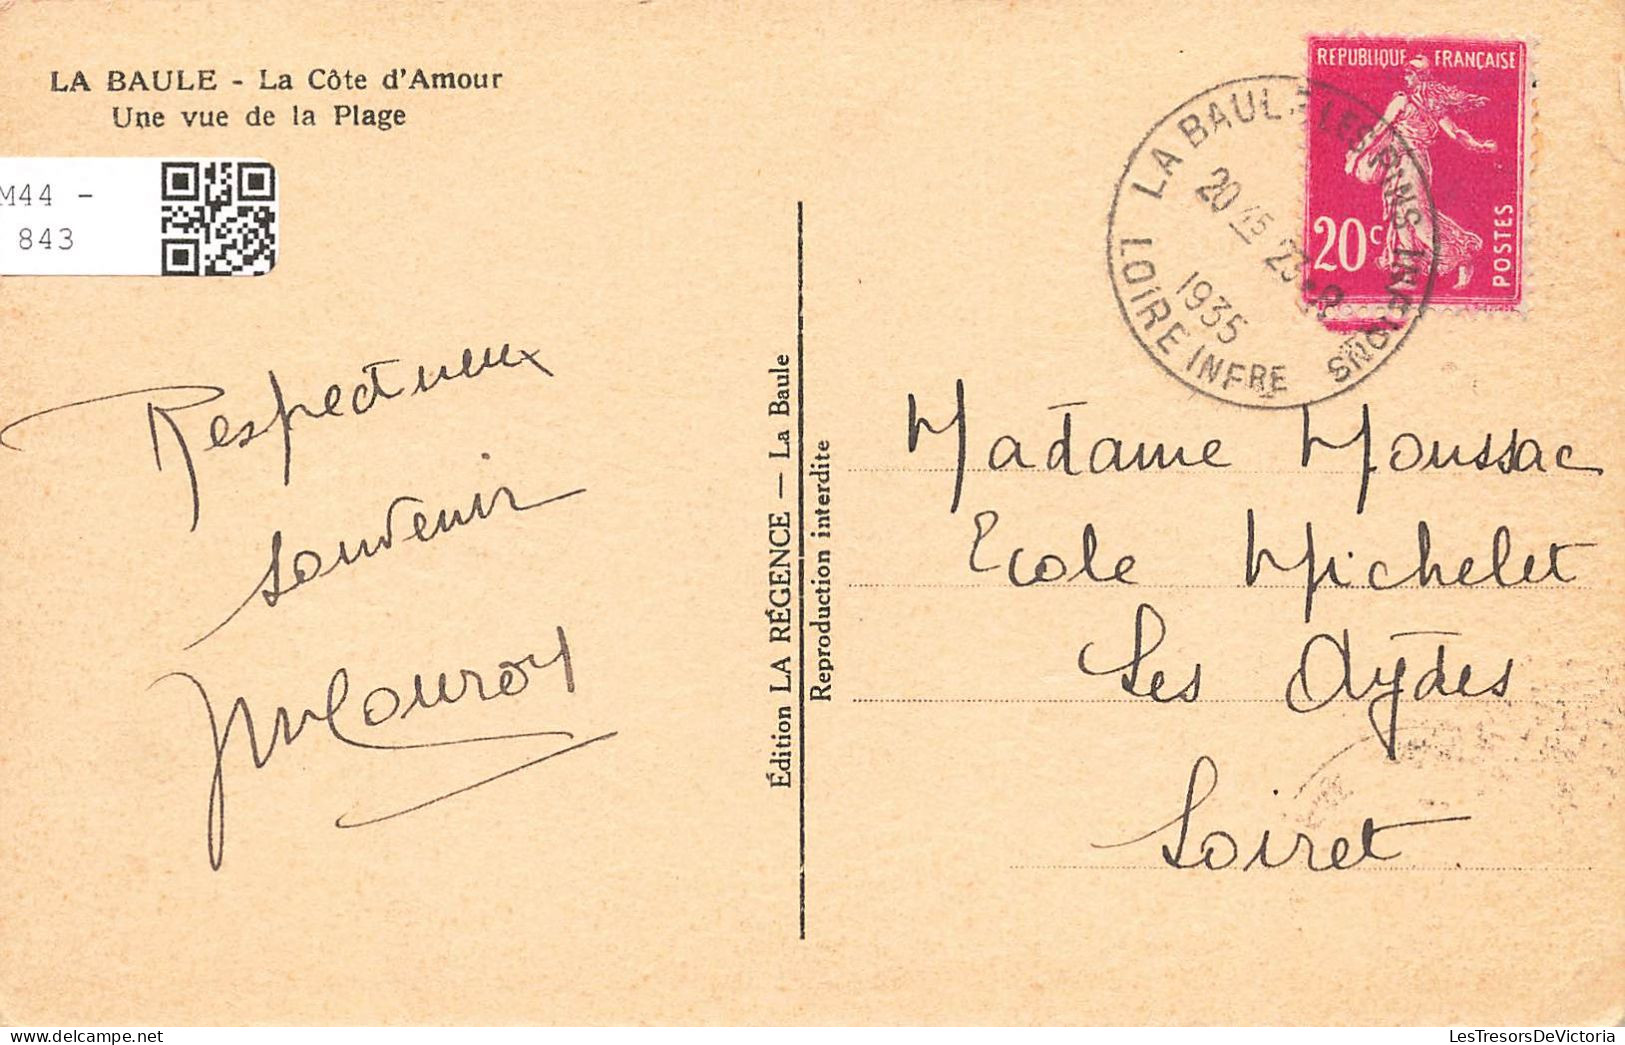 LA BAULE - La Côte d'Amour
Une vue de la Plage
M44 -
843
Respectueux
souvenir
Édition LA RÉGENCE — La Baule
Reproduction interdite
REPUBLIQUE FRANÇAISE
20c
POSTES
LA BAULE LES PINS
LOIRE INFRE
20 45
1935
Madame Moussac
Ecole Michelet
Les Aydes
Loiret
LesTresorsDeVictoria
delcampe.net